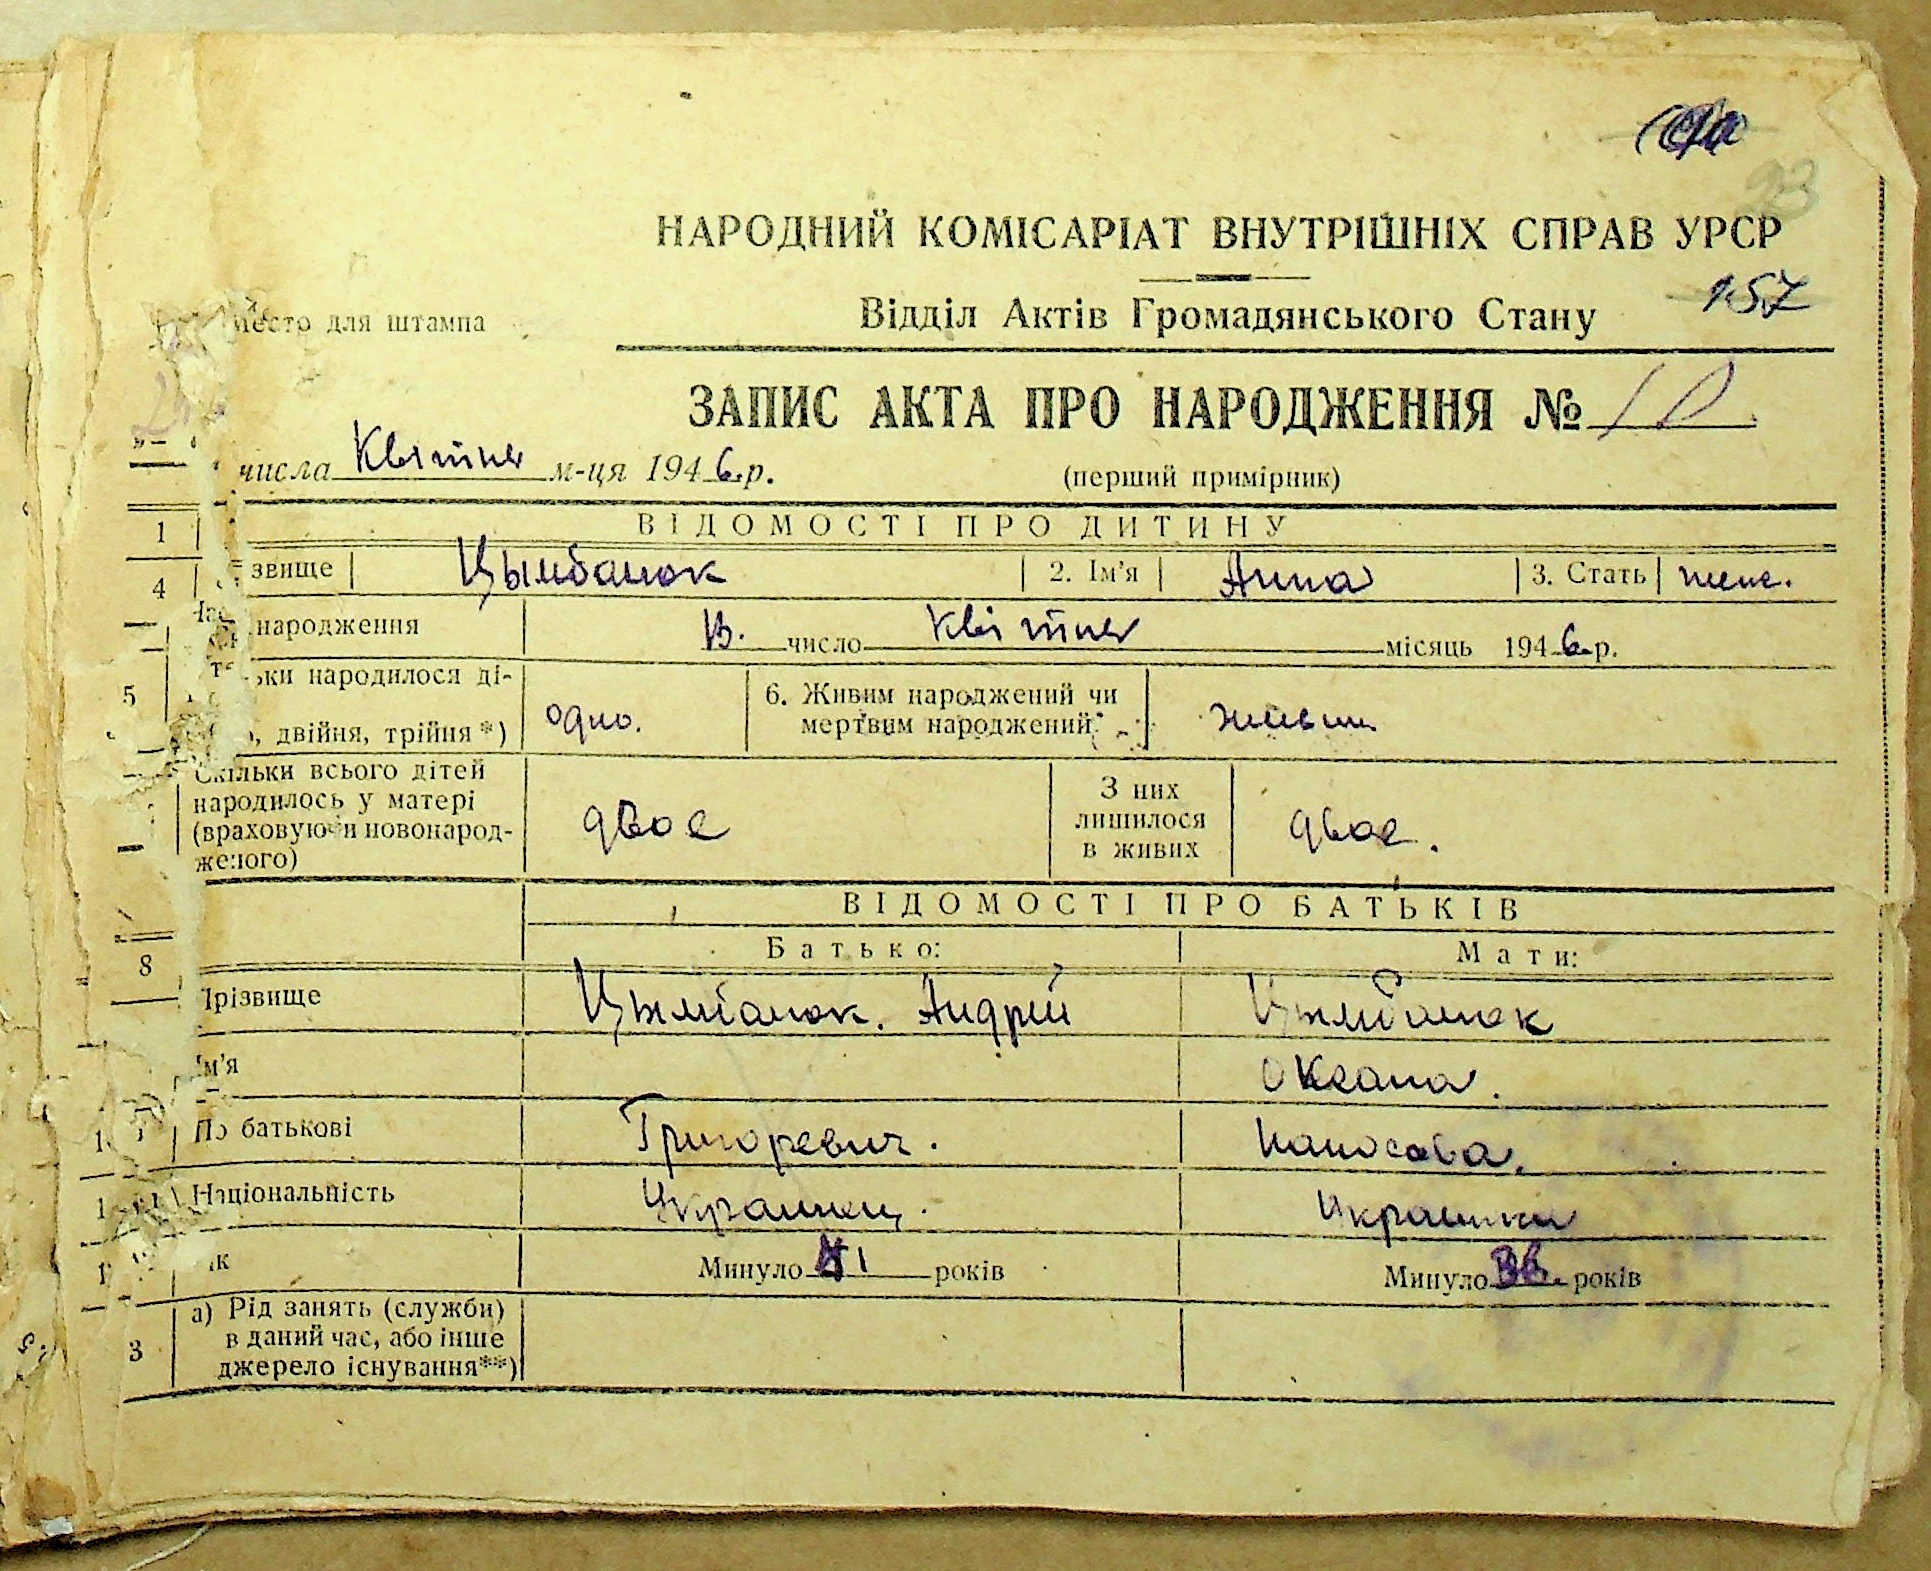 23
НАРОДНИЙ КОМІСАРІАТ ВНУТРІШНІХ СПРАВ УРСР
157
место для штампа
Відділ Актів Громадянського Стану
ЗАПИС АКТА ПРО НАРОДЖЕННЯ № 10.
числа Квітня м-ця 1946 р.
(перший примірник)
1 ВІДОМОСТІ ПРО ДИТИНУ
звище Цымбалюк 2. Ім'я Анна 3. Стать жен.
4 народження 13. число Квітня місяць 1946 р.
5 ьки народилося ді-
, двійня, трійня*) одно. 6. Живим народжений чи мертвим народжений живим
Скільки всього дітей
народилось у матері
(враховуючи новонарод-
женого) двое З них лишилося в живих двое.
ВІДОМОСТІ ПРО БАТЬКІВ
Батько: Мати:
8 Прізвище Цымбалюк. Андрій Цымбалюк
Ім'я Оксана.
По батькові Григоревич.
Національність Украинец. Украинка
ік Минуло 41 років Минуло 36. років
3 а) Рід занять (служби)
в даний час, або інше
джерело існування**)